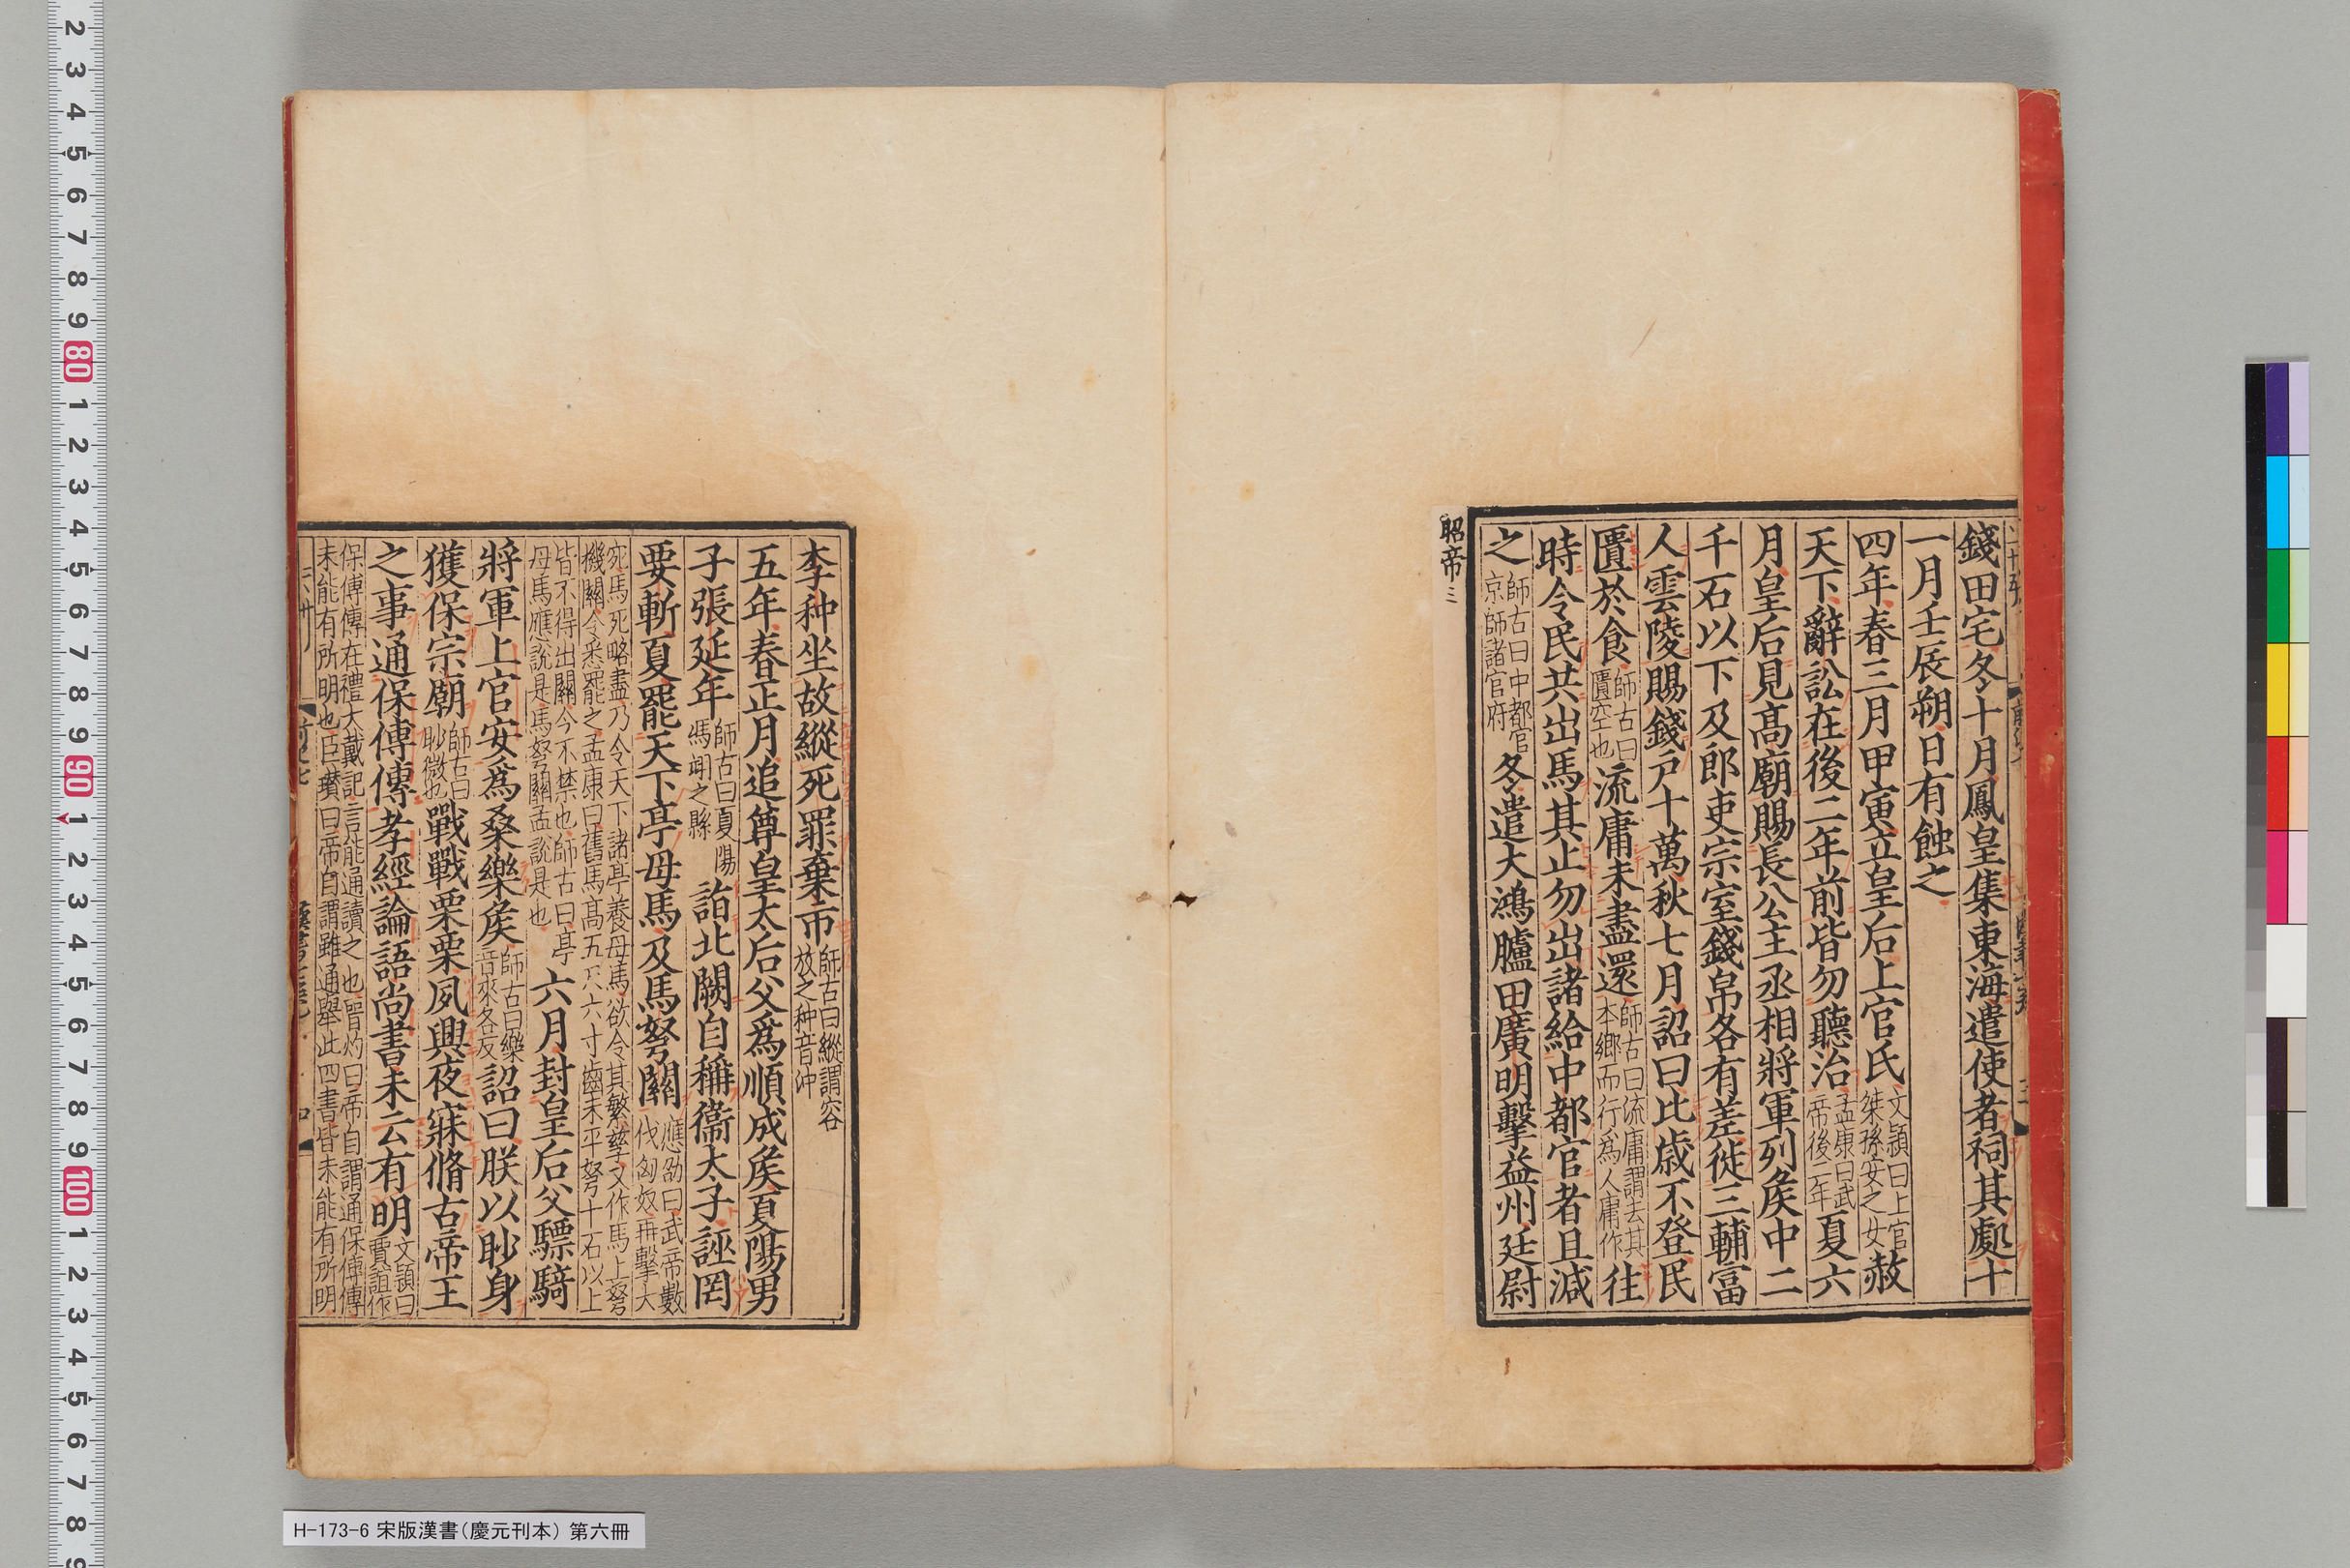 錢田宅冬十月鳳皇集東海遣使者祠其處十
一月壬辰朔日有蝕之
四年春三月甲寅立皇后上官氏文穎曰上官桀孫安之女赦
天下辭訟在後二年前皆勿聽治孟康曰武帝後二年夏六
月皇后見高廟賜長公主丞相將軍列矦中二
千石以下及郎吏宗室錢帛各有差徙三輔富
人雲陵賜錢戸十萬秋七月詔曰比歳不登民
匱於食師古曰匱空也流庸未盡還師古曰流庸謂去其本鄉而行爲人庸作往
時令民共出馬其止勿出諸給中都官者且減
之師古曰中都官京師諸官府冬遣大鴻臚田廣明擊益州廷尉
昭帝三
李种坐故縱死罪棄市師古曰縱謂容放之种音沖
五年春正月追尊皇太后父爲順成矦夏陽男
子張延年師古曰夏陽馮翊之縣詣北闕自稱衞太子誣罔
要斬夏罷天下亭母馬及馬弩關應劭曰武帝數伐匈奴再擊大
宛馬死略盡乃令天下諸亭養母馬欲令其繁孳又作馬上弩機關今悉罷之孟康曰舊馬髙五尺六寸齒未平弩十石以上
皆不得出關今不禁也師古曰亭母馬應說是馬弩關孟說是也六月封皇后父驃騎
將軍上官安爲桑樂矦師古曰樂音來各反詔曰朕以眇身
獲保宗廟師古曰眇微也戰戰栗栗夙興夜寐脩古帝王
之事通保傅傳孝經論語尚書未云有明文穎曰賈誼作
保傅傳在禮大戴記言能通讀之也晉灼曰帝自謂通保傅傳未能有所明也臣瓚曰帝自謂雖通舉此四書皆未能有所明
H-173-6 宋版漢書（慶元刊本） 第六冊
2
3
4
5
6
7
8
9
80
1
2
3
4
5
6
7
8
9
90
1
2
3
4
5
6
7
8
9
100
1
2
3
4
5
6
7
8
9